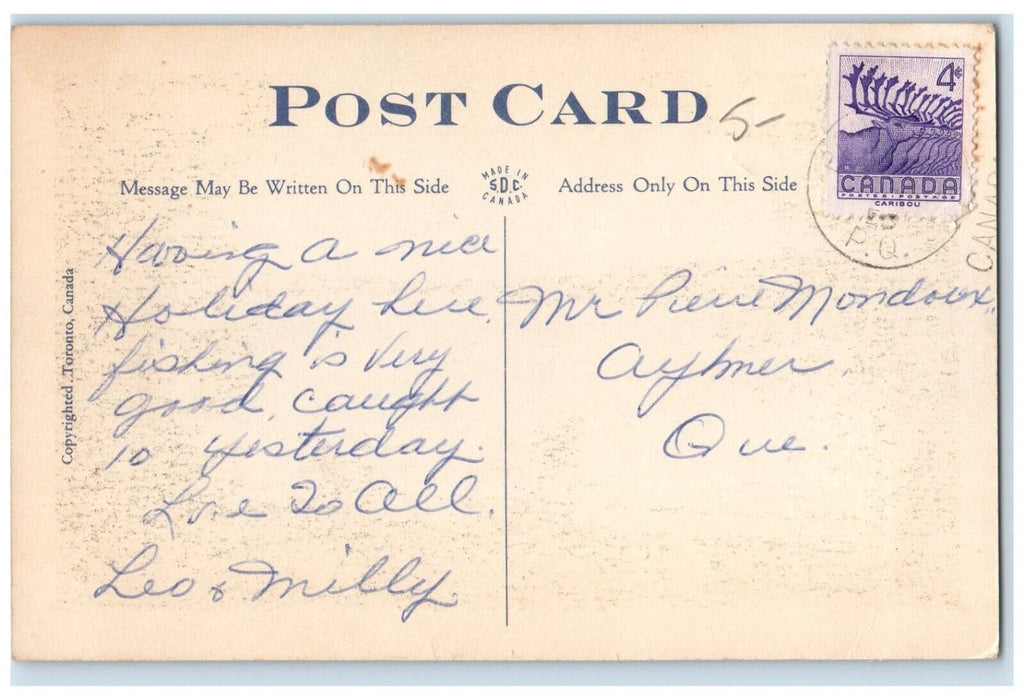 POST CARD 5-
Message May Be Written On This Side
MADE IN
S.D.C.
CANADA
Address Only On This Side
4¢
CANADA
POSTES·POSTAGE
CARIBOU
P.Q.
CANA
Copyrighted. Toronto, Canada
Having a nice
Holiday here.
fishing is very
good. caught
10 yesterday.
Love To All.
Leo & Milly.
Mr Pierre Mondoux
Aylmer.
Que.